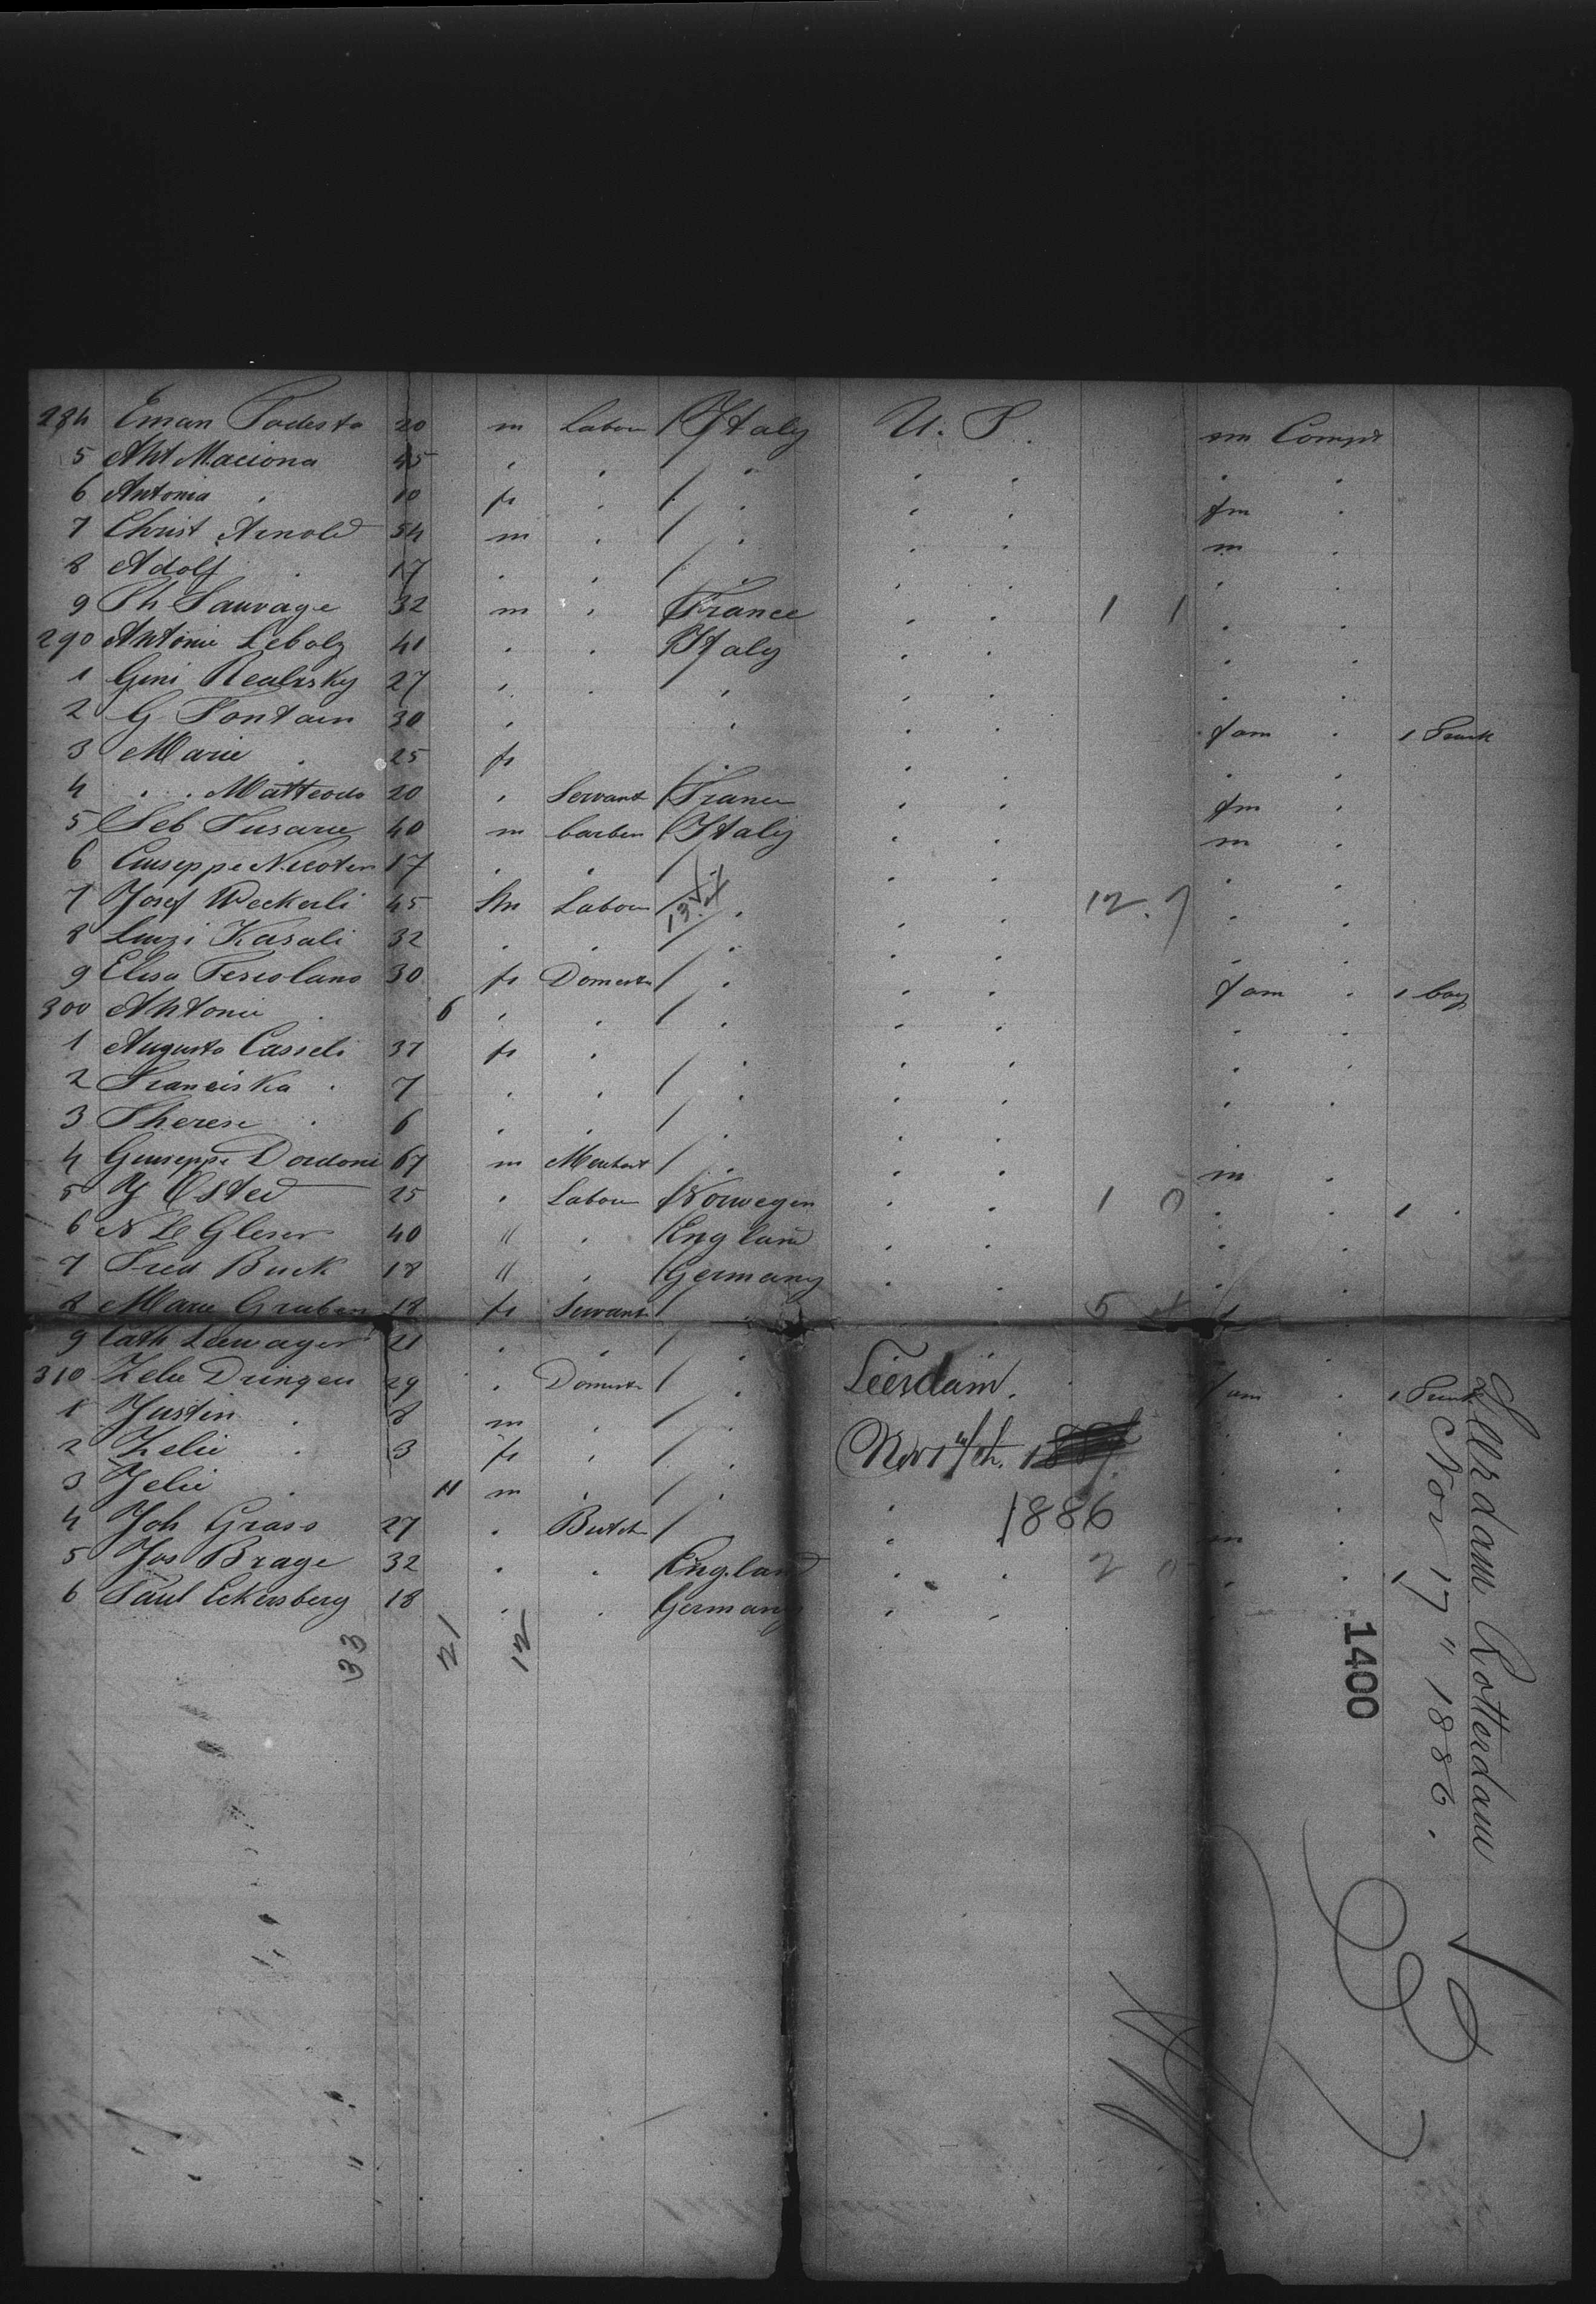 284 Eman Podesta 20 m Labour Italy U. S. m Compt
5 Ant Maciona 45 " " / " " " " "
6 Antonia " 10 fr " / " " " fm "
7 Christ Arnold 54 m " / " " " m "
8 Adolf " 17 " " / " " " " "
9 Ph Sauvage 32 m " France " " 1 1 " "
290 Antonie Lebolz 41 " " Italy " " " "
1 Gini Realisky 27 " " / " " " " "
2 G Fontain 30 " " " " fam " 1 Trunk
3 Marie " 25 fr / " " " "
4 " " Matteodo 20 " Servant France " " fm "
5 Seb Susarie 40 m barber Italy " " m "
6 Guseppe Nicoter 17 " " / " " " " "
7 Josef Weckerli 45 m Labour / 13 " " " 12. 7 " "
8 Luigi Kasali 32 " " / " " " " "
9 Elisa Tesiolano 30 fr Domestic / " " " fam " 1 bag
300 Antonie " 6 " " / " " " " "
1 Augusta Casseli 37 fr " / " " " " "
2 Franciska " 7 " " / " " " " "
3 Therese " 6 " " / " " "
4 Giuseppe Dordoni 67 m Merchant / " " " m "
5 J Osted 25 " Labour Norwegen " " 1 0 " " 1 "
6 N L Gleser 40 " " England " " " "
7 Fred Buck 18 " " Germany " " " "
8 Marie Gruber 18 fr Servant / " 5
9 Cath 21 " " / "
310 Zelie Dringen 29 " Domestic / " fam " 1 Trunk
1 Justin " 8 m " / "
2 Zelie " 3 fr " / "
3 Jelie " 11 m " / "
4 Joh Grass 27 " Butch / m
5 Jos Brage 32 " " England " " 2 0 " " 1
6 Paul Eckersberg 18 " " Germany " "
33 21 12
Leerdam.
Nov 17th. 1887.
1886
Leerdam Rotterdam
Nov 17" 1886.
1400